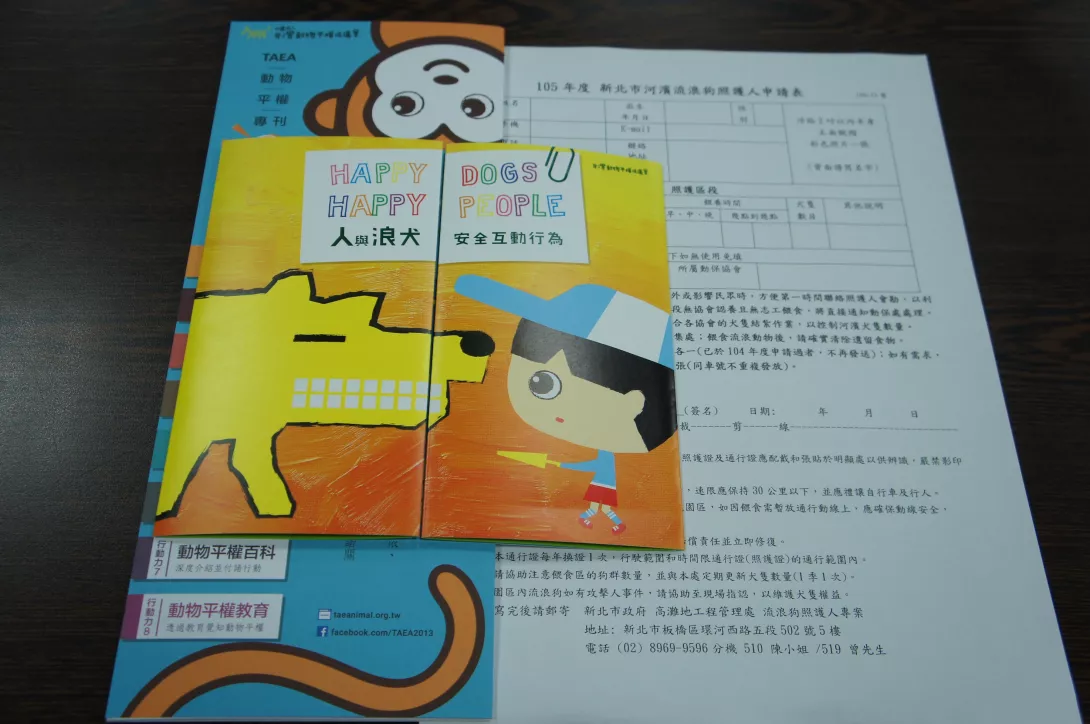 TAEA
動物
平權
專刊
HAPPY DOGS
HAPPY PEOPLE
人與浪犬 安全互動行為
行動力7
動物平權百科
深度介紹並付諸行動
行動力8
動物平權教育
透過教育覺知動物平權
taeanimal.org.tw
facebook.com/TAEA2013
105年度 新北市河濱流浪狗照護人申請表
E-mail
照護區段
餵養時間
犬隻數目
其他說明
早、中、晚
幾點到幾點
下如無使用免填
所屬動保協會
外或影響民眾時，方便第一時間聯絡照護人會勘，以利
段無協會認養且無志工餵食，將直接通知動保處處理。
合各協會的犬隻結紮作業，以控制河濱犬隻數量。
集處；餵食流浪動物後，請確實清除遺留食物。
各一(已於104年度申請過者，不再發送)；如有需求，
張(同車號不重複發放)。
(簽名) 日期: 年 月 日
裁-------剪------線
照護證及通行證應配戴和張貼於明顯處以供辨識，嚴禁影印
，速限應保持30公里以下，並應禮讓自行車及行人。
園區，如因餵食需暫放通行動線上，應確保動線安全，
償責任並立即修復。
本通行證每年換證1次，行駛範圍和時間限通行證(照護證)的通行範圍內。
請協助注意餵食區的狗群數量，並與本處定期更新犬隻數量(1季1次)。
園區內流浪狗如有攻擊人事件，請協助至現場指認，以維護犬隻權益。
寫完後請郵寄 新北市政府 高灘地工程管理處 流浪狗照護人專案
地址: 新北市板橋區環河西路五段502號5樓
電話 (02) 8969-9596分機 510 陳小姐 /519 曾先生